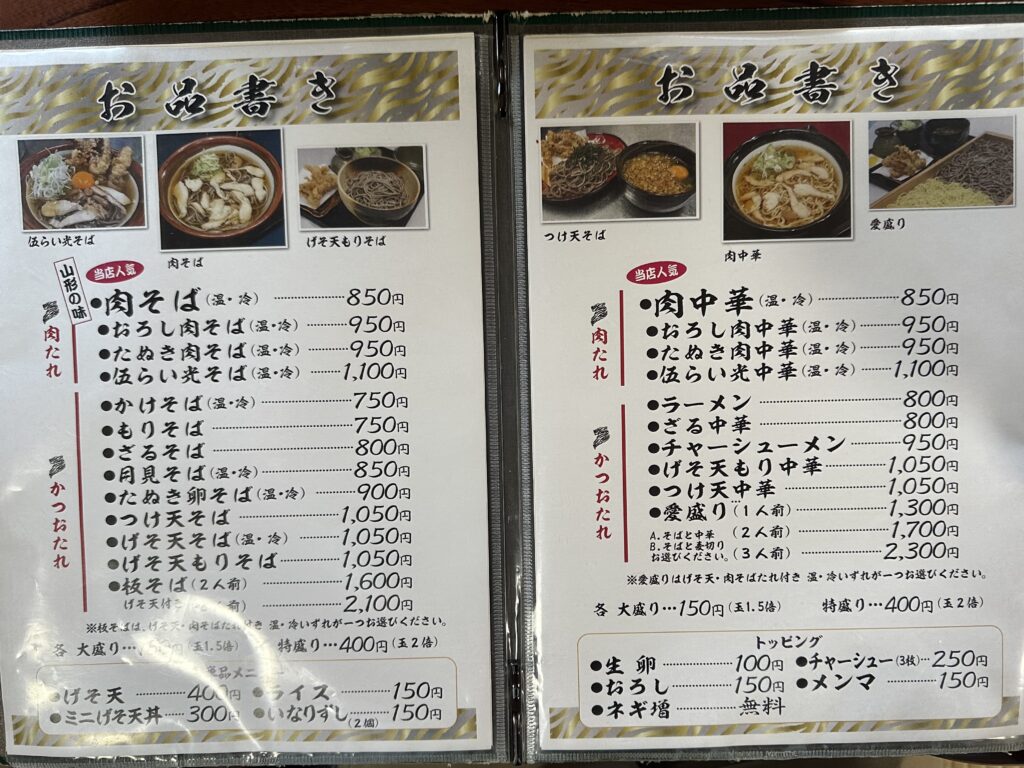 お品書き
伍らい光そば
肉そば
げそ天もりそば
山形の味
当店人気
肉たれ
●肉そば(温・冷) 850円
●おろし肉そば(温・冷) 950円
●たぬき肉そば(温・冷) 950円
●伍らい光そば(温・冷) 1,100円
かつおたれ
●かけそば(温・冷) 750円
●もりそば 750円
●ざるそば 800円
●月見そば(温・冷) 850円
●たぬき卵そば(温・冷) 900円
●つけ天そば 1,050円
●げそ天そば(温・冷) 1,050円
●げそ天もりそば 1,050円
●板そば(2人前) 1,600円
げそ天付き 人前) 2,100円
※板そばは、げそ天・肉そばたれ付き 温・冷いずれが一つお選びください。
各 大盛り… 50円(玉1.5倍) 特盛り…400円(玉2倍)
単品メニュー
●げそ天 400円 ●ライス 150円
●ミニげそ天丼 300円 ●いなりずし(2個) 150円
お品書き
つけ天そば
肉中華
愛盛り
当店人気
肉たれ
●肉中華(温・冷) 850円
●おろし肉中華(温・冷) 950円
●たぬき肉中華(温・冷) 950円
●伍らい光中華(温・冷) 1,100円
かつおたれ
●ラーメン 800円
●ざる中華 800円
●チャーシューメン 950円
●げそ天もり中華 1,050円
●つけ天中華 1,050円
●愛盛り(1人前) 1,300円
A.そばと中華 (2人前) 1,700円
B.そばと麦切り
お選びください。(3人前) 2,300円
※愛盛りはげそ天・肉そばたれ付き 温・冷いずれが一つお選びください。
各 大盛り…150円(玉1.5倍) 特盛り…400円(玉2倍)
トッピング
●生卵 100円 ●チャーシュー(3枚)…250円
●おろし 150円 ●メンマ 150円
●ネギ増 無料